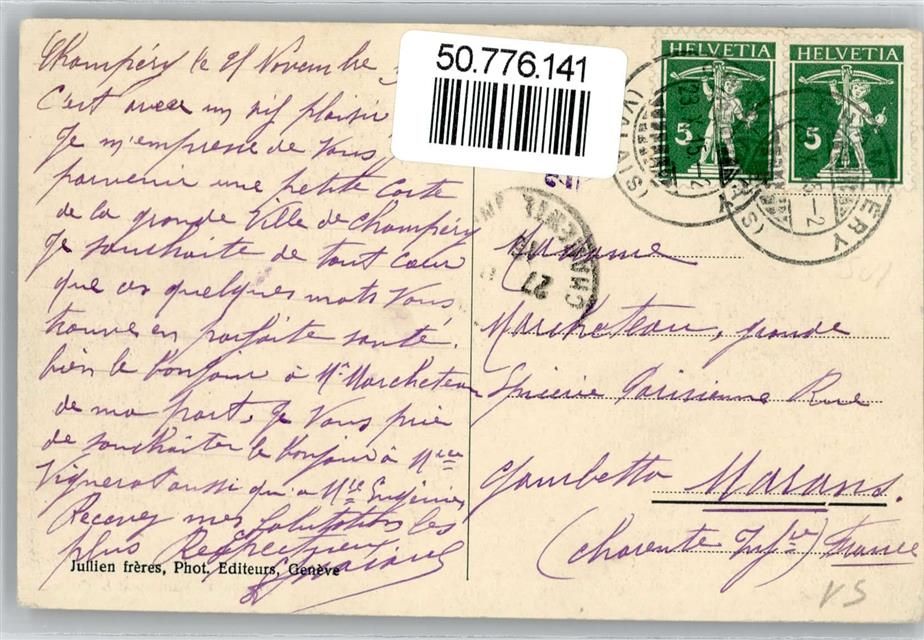 Champéry le 21 Novembre
C'est avec un vif plaisir
Je m'empresse de Vous
parvenir une petite Carte
de la grande Ville de Champéry
Je souhaite de tout Cœur
que ces quelques mots Vous
trouve en parfaite santé.
bien le bonjour à Mr Marcheteau
de ma part, Je Vous prie
de souhaiter le bonjour à Mme
Vignerot aussi qu'a Mlle Eugénie,
Recevez mes Salutations les
plus Respectueux
Jullien frères, Phot. Editeurs, Genève
50.776.141
HELVETIA
5
HELVETIA
5
Madame
Marcheteau, grande
Epicerie Parisienne Rue
Gambetta Marans.
(Charente Infre) France
VS